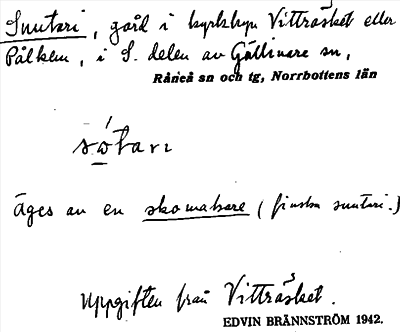 Suutari, gård i kyrkbyn Vitträsket eller
Pålkem, i S. delen av Gällivare sn,
Råneå sn och tg, Norrbottens län
sótarı
äges av en skomakare (finska suutari.)
Uppgiften från Vitträsket.
EDVIN BRÄNNSTRÖM 1942.